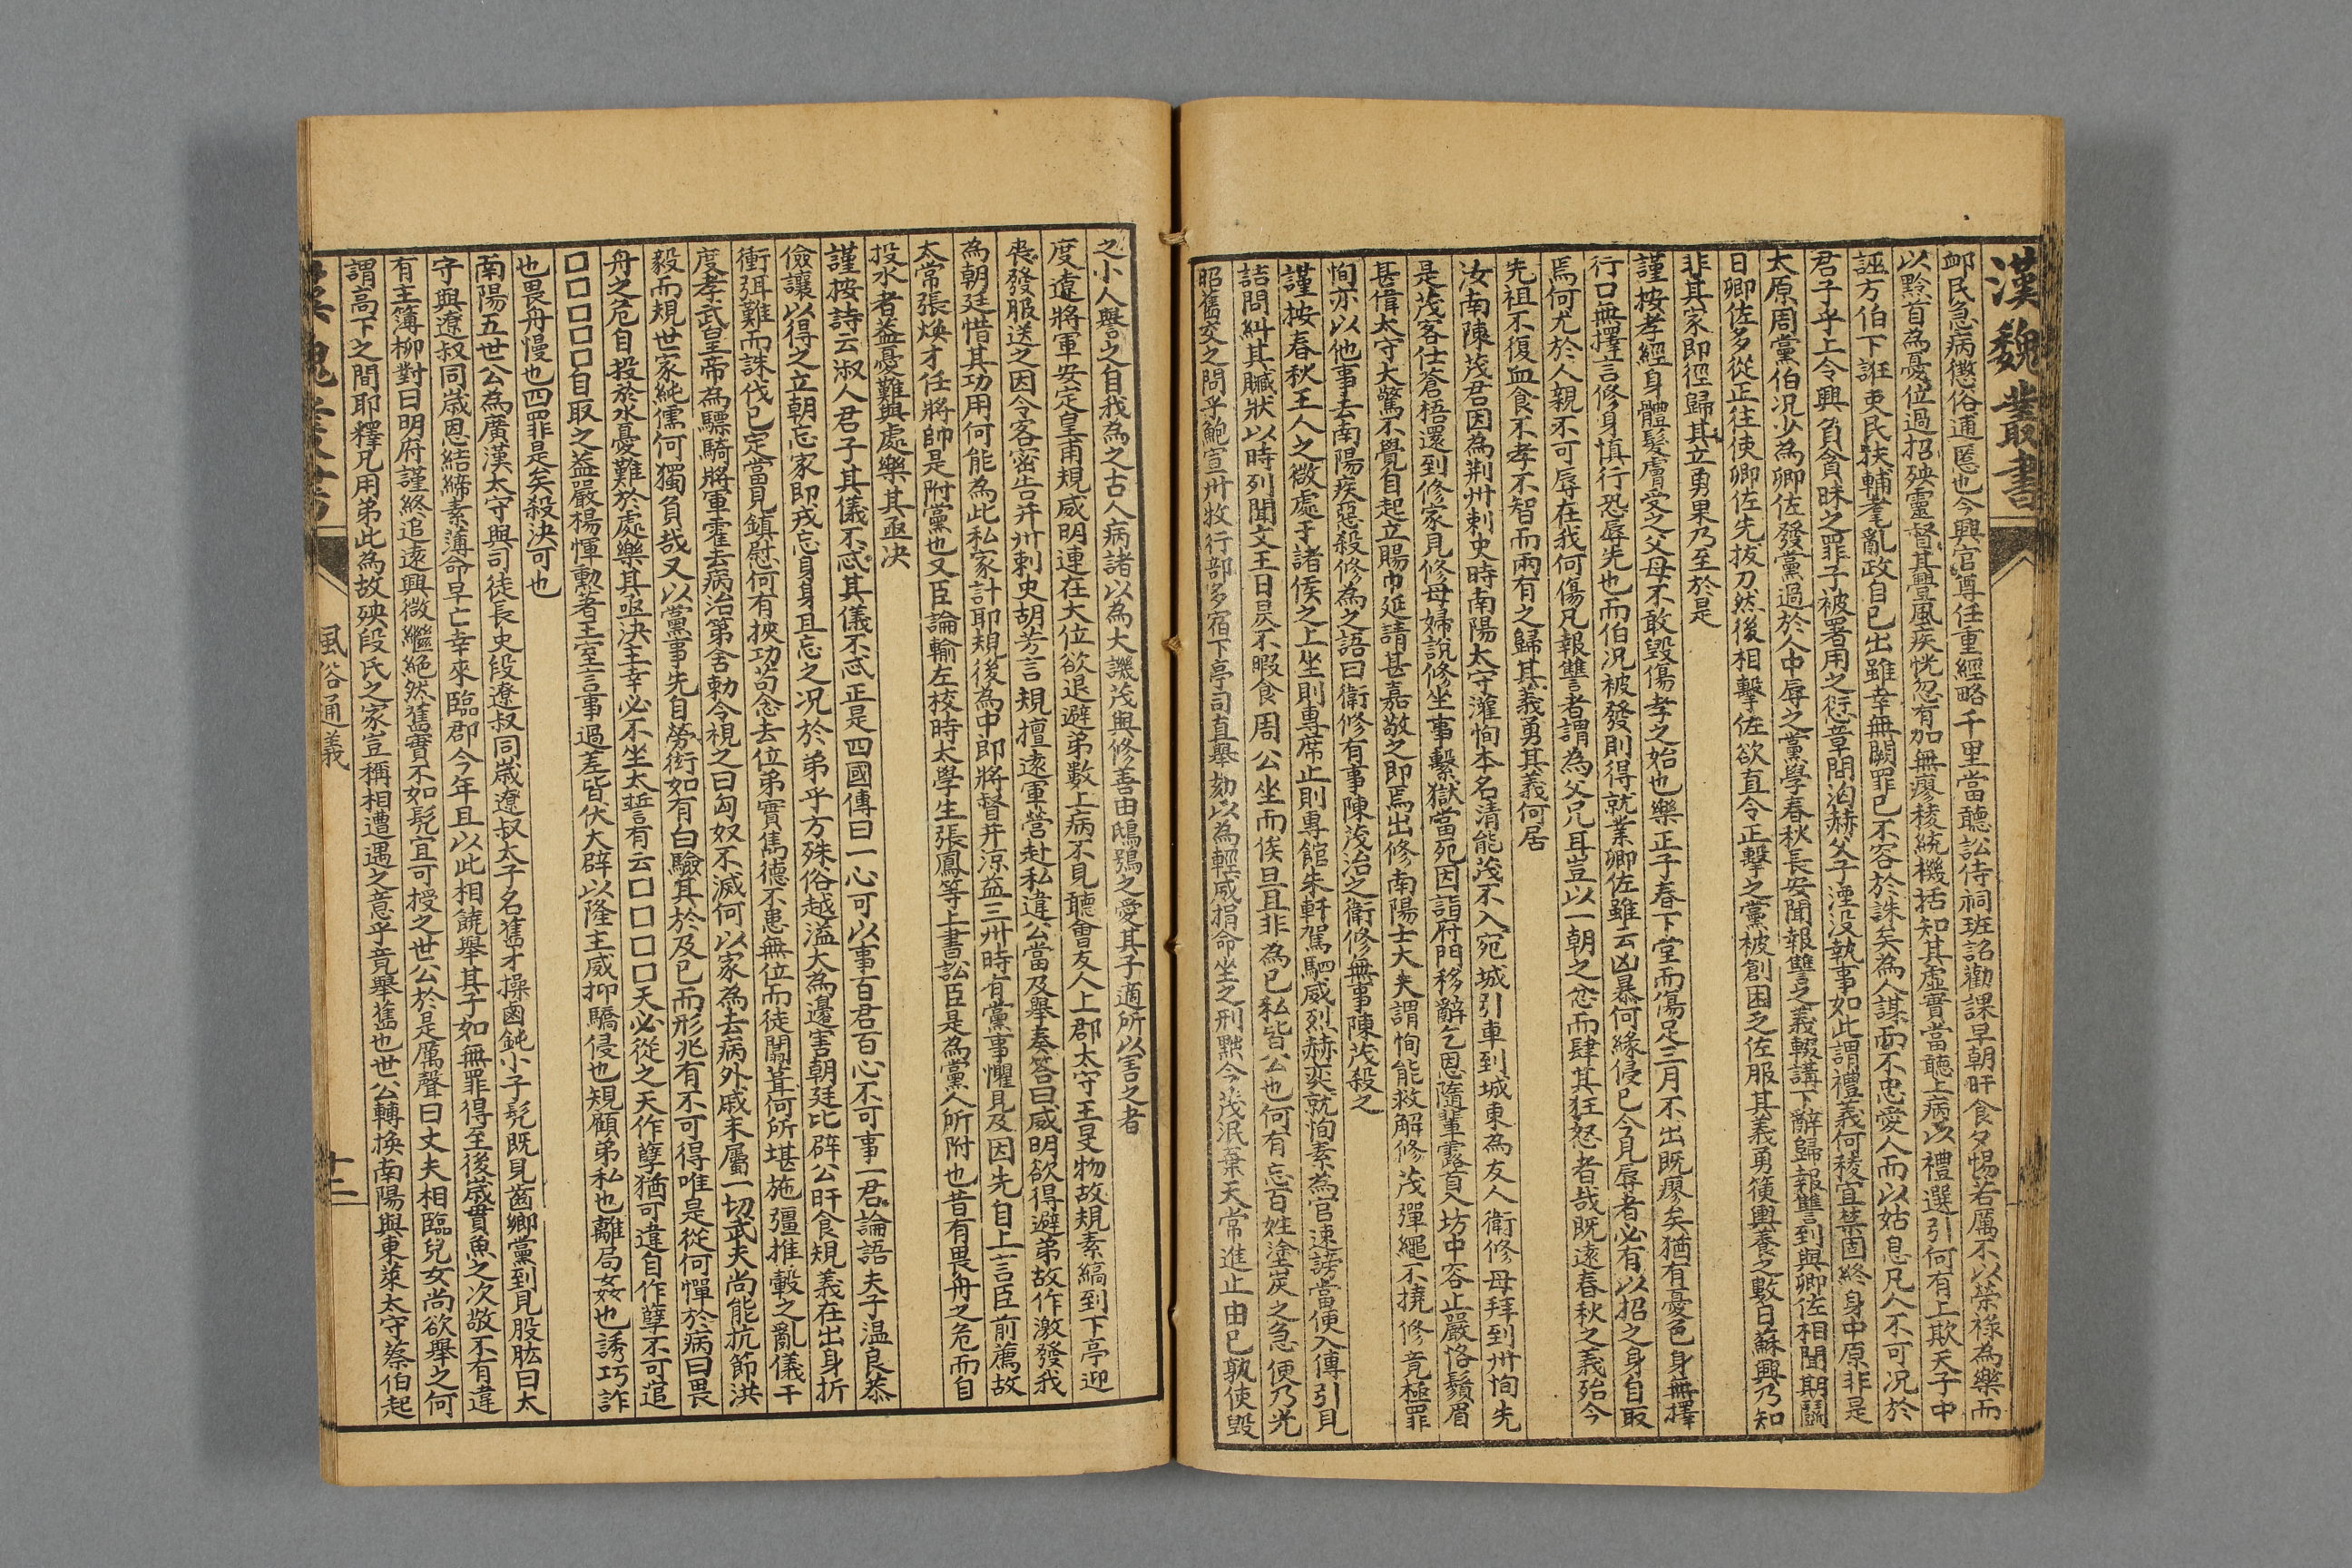 漢魏叢書
卹民急病懲俗逋慝也今興官尊任重經略千里當聽訟侍祠班詔勸課早朝旰食夕惕若厲不以榮祿為樂而
以黔首為憂位過招殃靈督其釁風疾恍忽有加無瘳稜統機括知其虛實當聽上病以禮選引何有上欺天子中
誣方伯下誑吏民扶輔耄亂政自己出雖幸無闕罪已不容於誅矣為人謀而不忠愛人而以姑息凡人不可況於
君子乎上令興負貪昧之罪子被署用之愆章問洶赫父子湮沒執事如此謂禮義何稜宜禁固終身中原非是
太原周黨伯况少為鄉佐發黨過於人中辱之黨學春秋長安聞報讐之義輟講下辭歸報讐到與鄉佐相聞期鬪
日鄉佐多從正往使鄉佐先拔刀然後相擊佐欲直令正擊之黨被創困乏佐服其義勇箯輿養之數日蘇興乃知
非其家即徑歸其立勇果乃至於是
謹按孝經身體髮膚受之父母不敢毀傷孝之始也樂正子春下堂而傷足三月不出既瘳矣猶有憂色身無擇
行口無擇言修身慎行恐辱先也而伯况被發則得就業鄉佐雖云凶暴何緣侵已今見辱者必有以招之身自取
焉何尤於人親不可辱在我何傷凡報讐者謂為父兄耳豈以一朝之忿而肆其狂怒者哉既遠春秋之義殆令
先祖不復血食不孝不智而兩有之歸其義勇其義何居
汝南陳茂君因為荆州刺史時南陽太守灌恂本名清能茂不入宛城引車到城東為友人衛修母拜到州恂先
是茂客仕蒼梧還到修家見修母婦說修坐事繫獄當死因詣府門移辭乞恩隨輩露首入坊中容止嚴恪鬚眉
甚偉太守大驚不覺自起立賜巾延請甚嘉敬之即焉出修南陽士大夫謂恂能救解修茂彈繩不撓修竟極罪
恂亦以他事去南陽疾惡殺修為之語曰衛修有事陳茂治之衛修無事陳茂殺之
謹按春秋王人之微處于諸侯之上坐則專席止則專館朱軒駕駟威烈赫奕就恂素為官速謗當便入傳引見
詰問糾其贓狀以時列聞文王日昃不暇食周公坐而俟旦且非為已私皆公也何有忘百姓塗炭之急便乃光
昭舊交之問乎鮑宣州牧行部多宿下亭司直舉劾以為輕威捐命坐之刑黜今茂泯棄天常進止由已孰使毀
之小人譽之自我為之古人病諸以為大譏茂與修善由鴟鴞之愛其子適所以害之者
度遼將軍安定皇甫規威明連在大位欲退避弟數上病不見聽會友人上郡太守王旻物故規素縞到下亭迎
喪發服送之因令客密告并州刺史胡芳言規擅遠軍營赴私違公當及舉奏答曰威明欲得避弟故作激發我
為朝廷惜其功用何能為此私家計耶規後為中郎將督并凉益三州時有黨事懼見及因先自上言臣前薦故
太常張煥才任將帥是附黨也又臣論輸左校時太學生張鳳等上書訟臣是為黨人所附也昔有畏舟之危而自
投水者益憂難與處樂其亟決
謹按詩云淑人君子其儀不忒其儀不忒正是四國傳曰一心可以事百君百心不可事一君論語夫子温良恭
儉讓以得之立朝忘家即戎忘身身且忘之况於弟乎方殊俗越溢大為邊害朝廷比辟公旰食規義在出身折
衝弭難而誅伐已定當見鎮慰何有挾功苟念去位弟實雋德不患無位而徒闒葺何所堪施彊推轂之亂儀干
度孝武皇帝為驃騎將軍霍去病治第舍勅令視之曰匈奴不滅何以家為去病外戚末屬一切武夫尚能抗節洪
毅而規世家純儒何獨負哉又以黨事先自勞衒如有白驗其於及已而形兆有不可得唯是從何憚於病曰畏
舟之危自投於水憂難於處樂其亟決主幸必不坐太誓有云囗囗囗囗天必從之天作孽猶可違自作孽不可逭
囗囗囗囗囗自取之益嚴楊惲勲著王室言事過差皆伏大辟以隆主威抑驕侵也規顧弟私也離局姦也誘巧詐
也畏舟慢也四罪是矣殺決可也
南陽五世公為廣漢太守與司徒長史段遼叔同歲遼叔太子名舊才操鹵鈍小子髠既見齒鄉黨到見股肱曰太
守與遼叔同歲恩結締素薄命早亡幸來臨郡今年且以此相饒舉其子如無罪得至後歲貫魚之次敬不有違
有主簿柳對曰明府謹終追遠興微繼絕然舊實不如髠宜可授之世公於是厲聲曰丈夫相臨兒女尚欲舉之何
謂高下之間耶釋兄用弟此為故殃段氏之家豈稱相遭遇之意乎竟舉舊也世公轉換南陽與東萊太守蔡伯起
風俗通義
十二